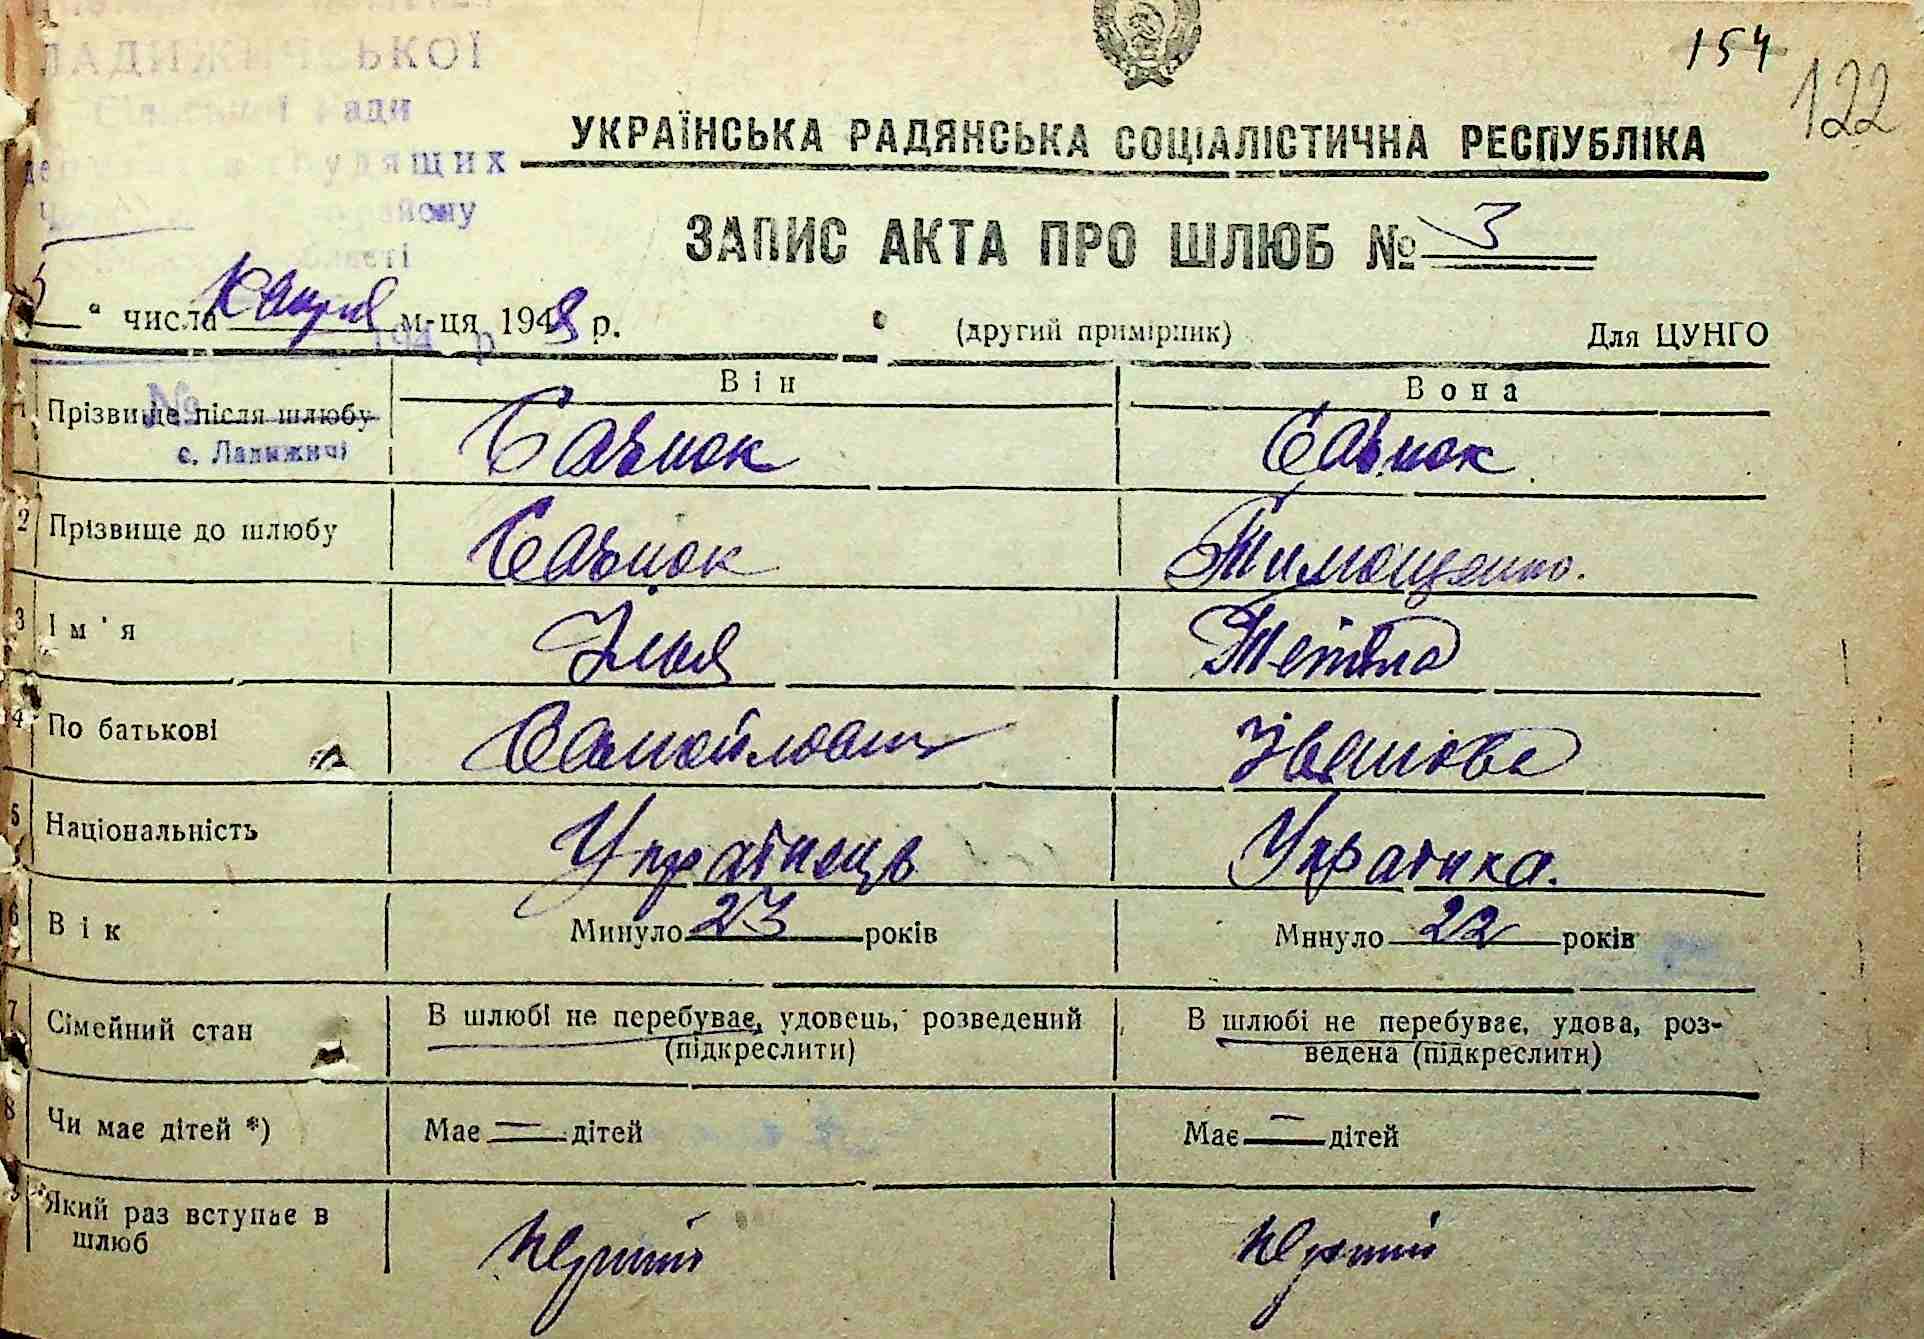 ЛАДИЖИЧСЬКОЇ
Сільської Ради
депутатів трудящих
району
області
154
122
УКРАЇНСЬКА РАДЯНСЬКА СОЦІАЛІСТИЧНА РЕСПУБЛІКА
ЗАПИС АКТА ПРО ШЛЮБ № 3
5 " числа м-ця 1948 р.
(другий примірник) Для ЦУНГО
194 р
Він Вона
1 Прізвище після шлюбу Сачнок Сачнок
№
с. Ладижичі
2 Прізвище до шлюбу Сачнок Тимощенко.
3 Ім'я Ілья Тетяна
4 По батькові Самойлович Іванова
5 Національність Українець Українка.
6 Вік Минуло 23 років Минуло 22 років
7 Сімейний стан В шлюбі не перебуває, удовець, розведений В шлюбі не перебуває, удова, роз-
(підкреслити) ведена (підкреслити)
8 Чи має дітей *) Має — дітей Має — дітей
9 Який раз вступає в
шлюб Перший Перший